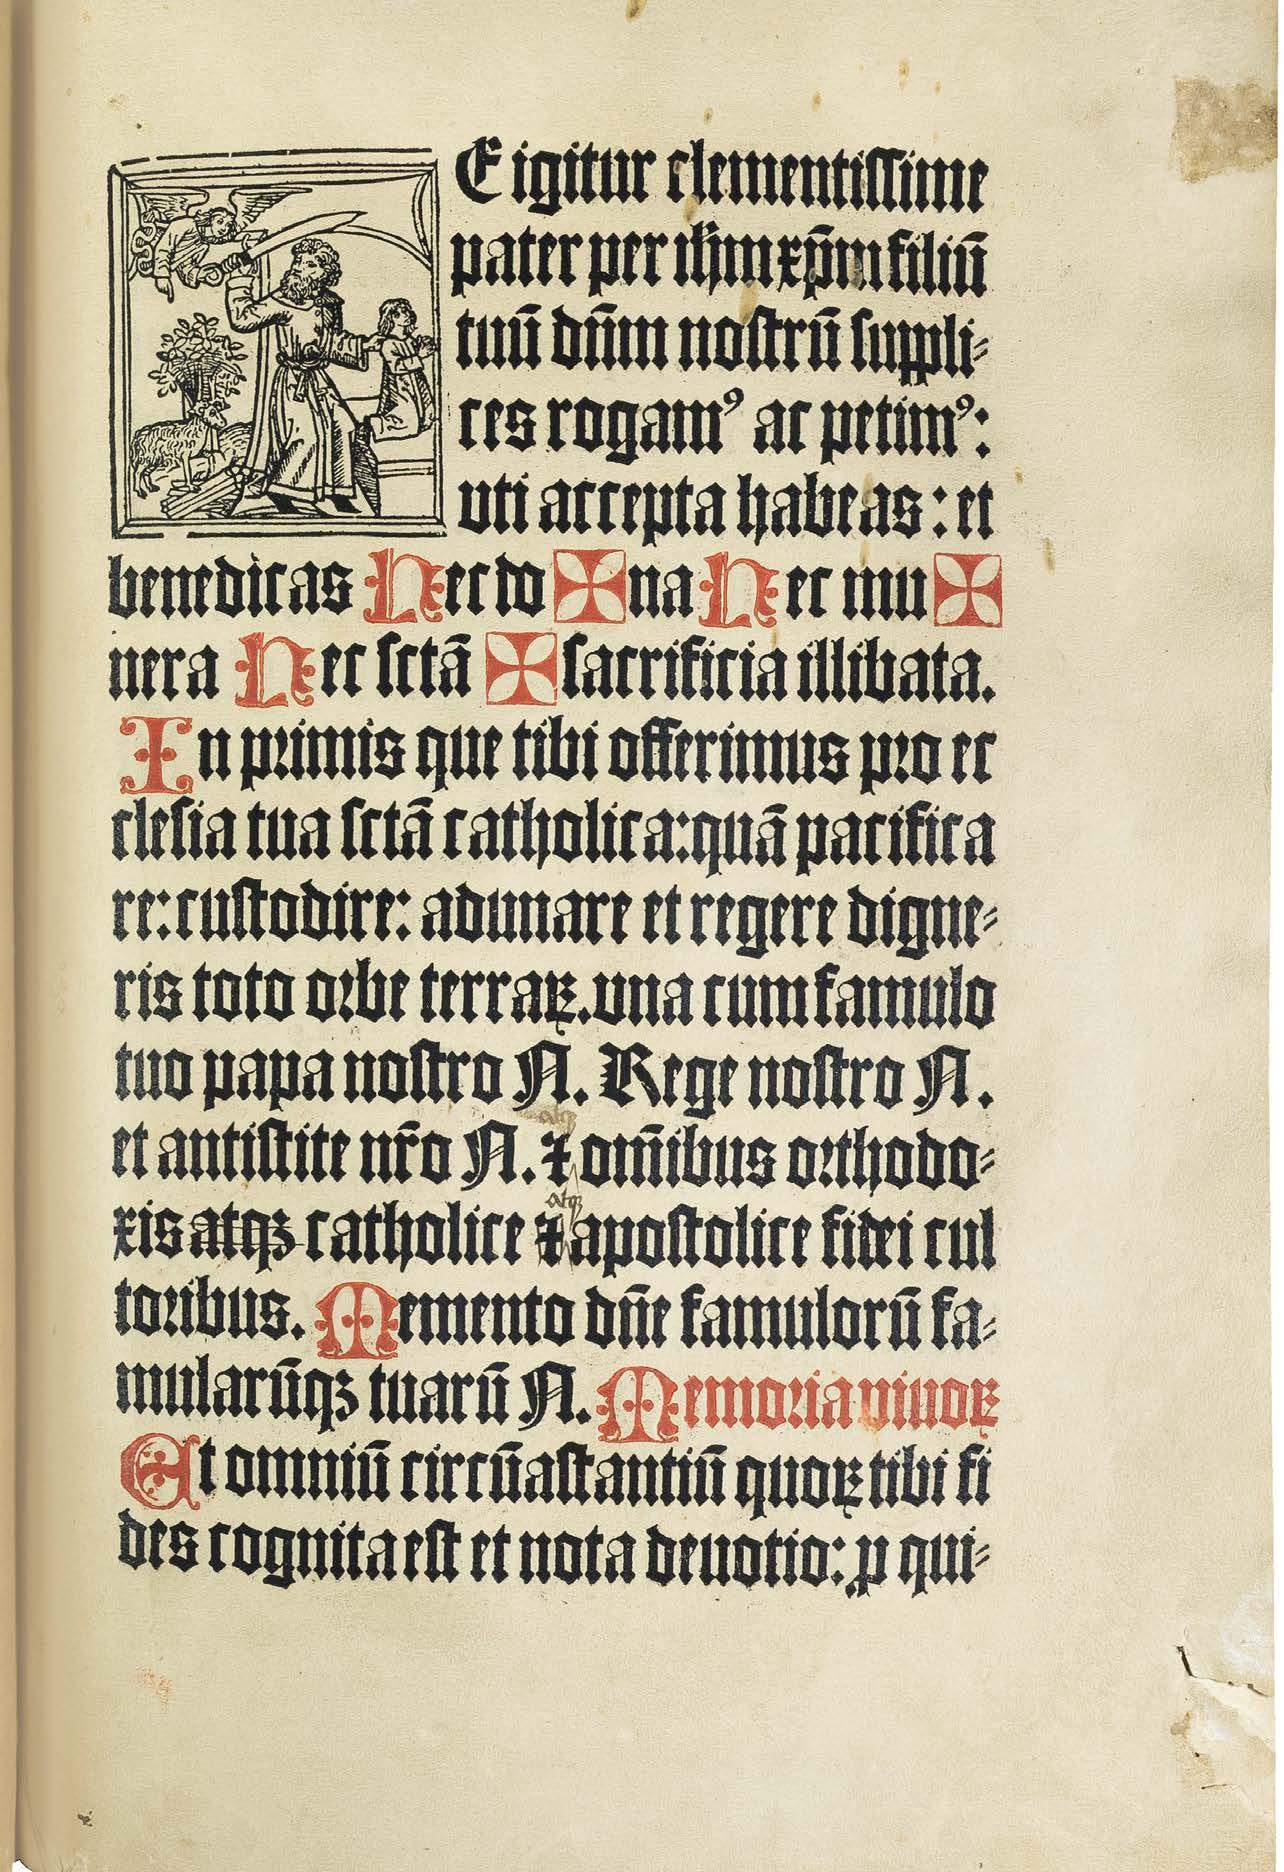 E igitur clementissime
pater per ihm xp̄m filiū
tuū dn̄m nostrū suppli⸗
ces rogamꝰ ac petimꝰ:
uti accepta habeas: et
benedicas Hec do ✠ na Hec mu ✠
nera Hec sctā ✠ sacrificia illibata.
In primis que tibi offerimus pro ec
clesia tua sctā catholica: quā pacifica
re: custodire: adunare et regere digne⸗
ris toto orbe terraꝝ. una cum famulo
tuo papa nostro N. Rege nostro N.
atqꝫ
et antistite nr̄o N. ⁊ om̄ibus orthodo⸗
atqꝫ
xis atqꝫ catholice ⁊ apostolice fidei cul
toribus. Memento dn̄e famulorū fa⸗
mularūqꝫ tuarū N. Memoria viuoꝝ
Et omniū circūastantiū quoꝝ tibi fi
des cognita est et nota deuotio: ꝑ qui⸗